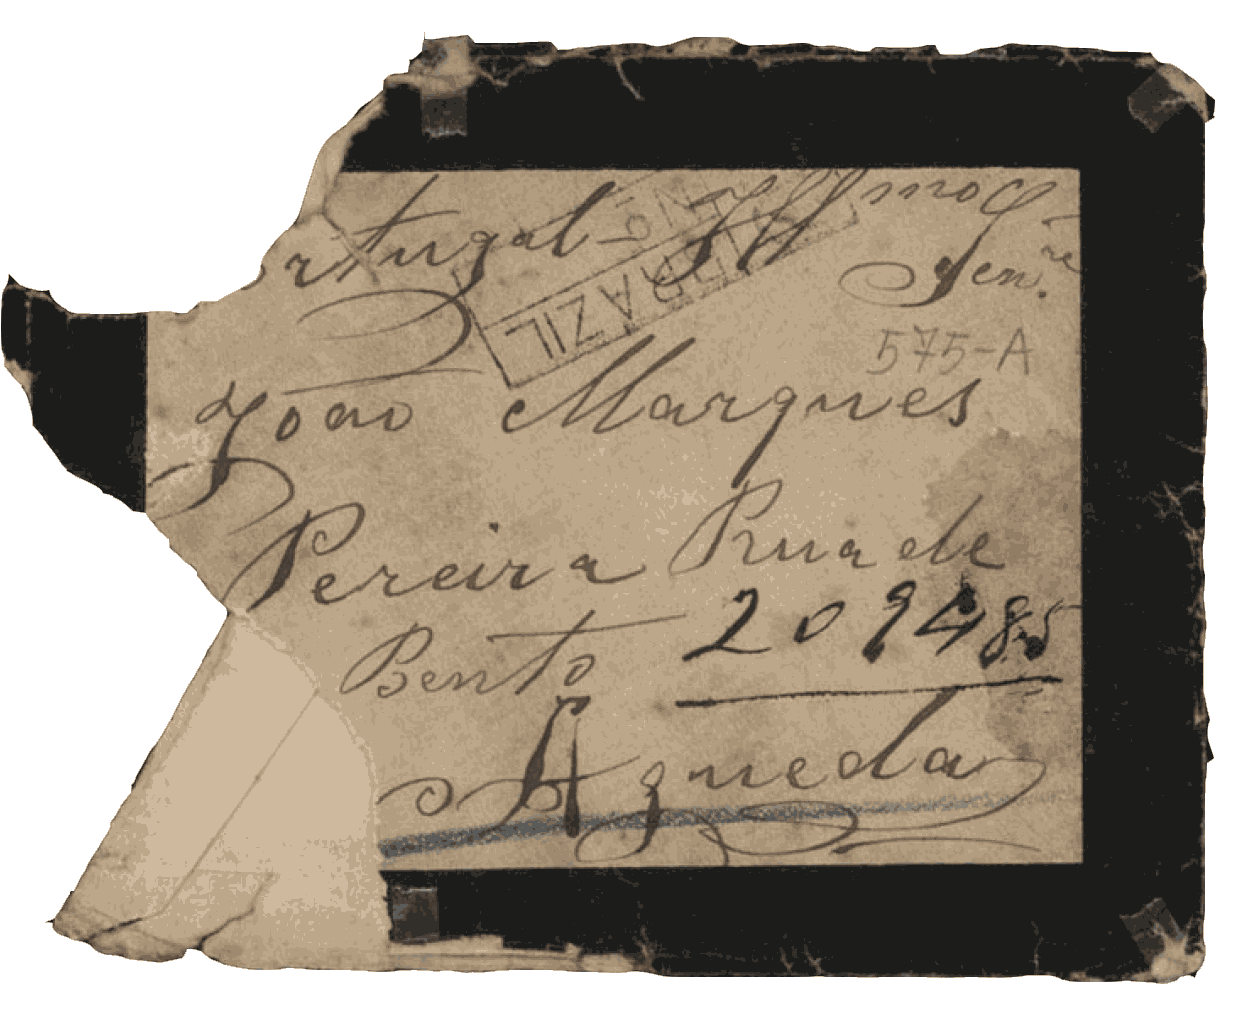 ortugal Illmo
Senre.
BRAZIL
575-A
João Marques
Pereira Rua de
Bento 209485
Agueda